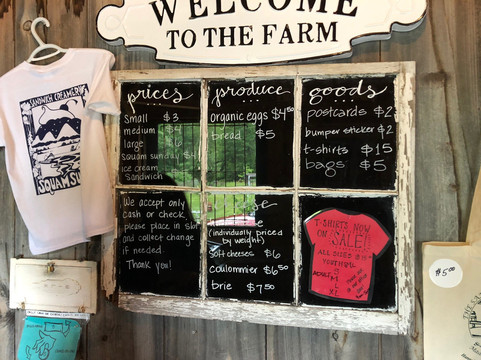 WELCOME
TO THE FARM
SANDWICH CREAMERY
SQUAM SU
prices
small $3
medium $4
large 6
squam sunday $4
ice cream
sandwich
produce
organic eggs $4.50
bread $5
goods
postcards $2
bumper sticker $2
t-shirts $15
bags $5
We accept only
cash or check,
please place in slot
and collect change
if needed.
Thank you!
(individually priced
by weight)
soft cheeses $6
coulommier $6.50
brie $7.50
T-SHIRTS NOW
ON SALE!!
ALL SIZES $10
YOUTH &
ADULT
$5.00